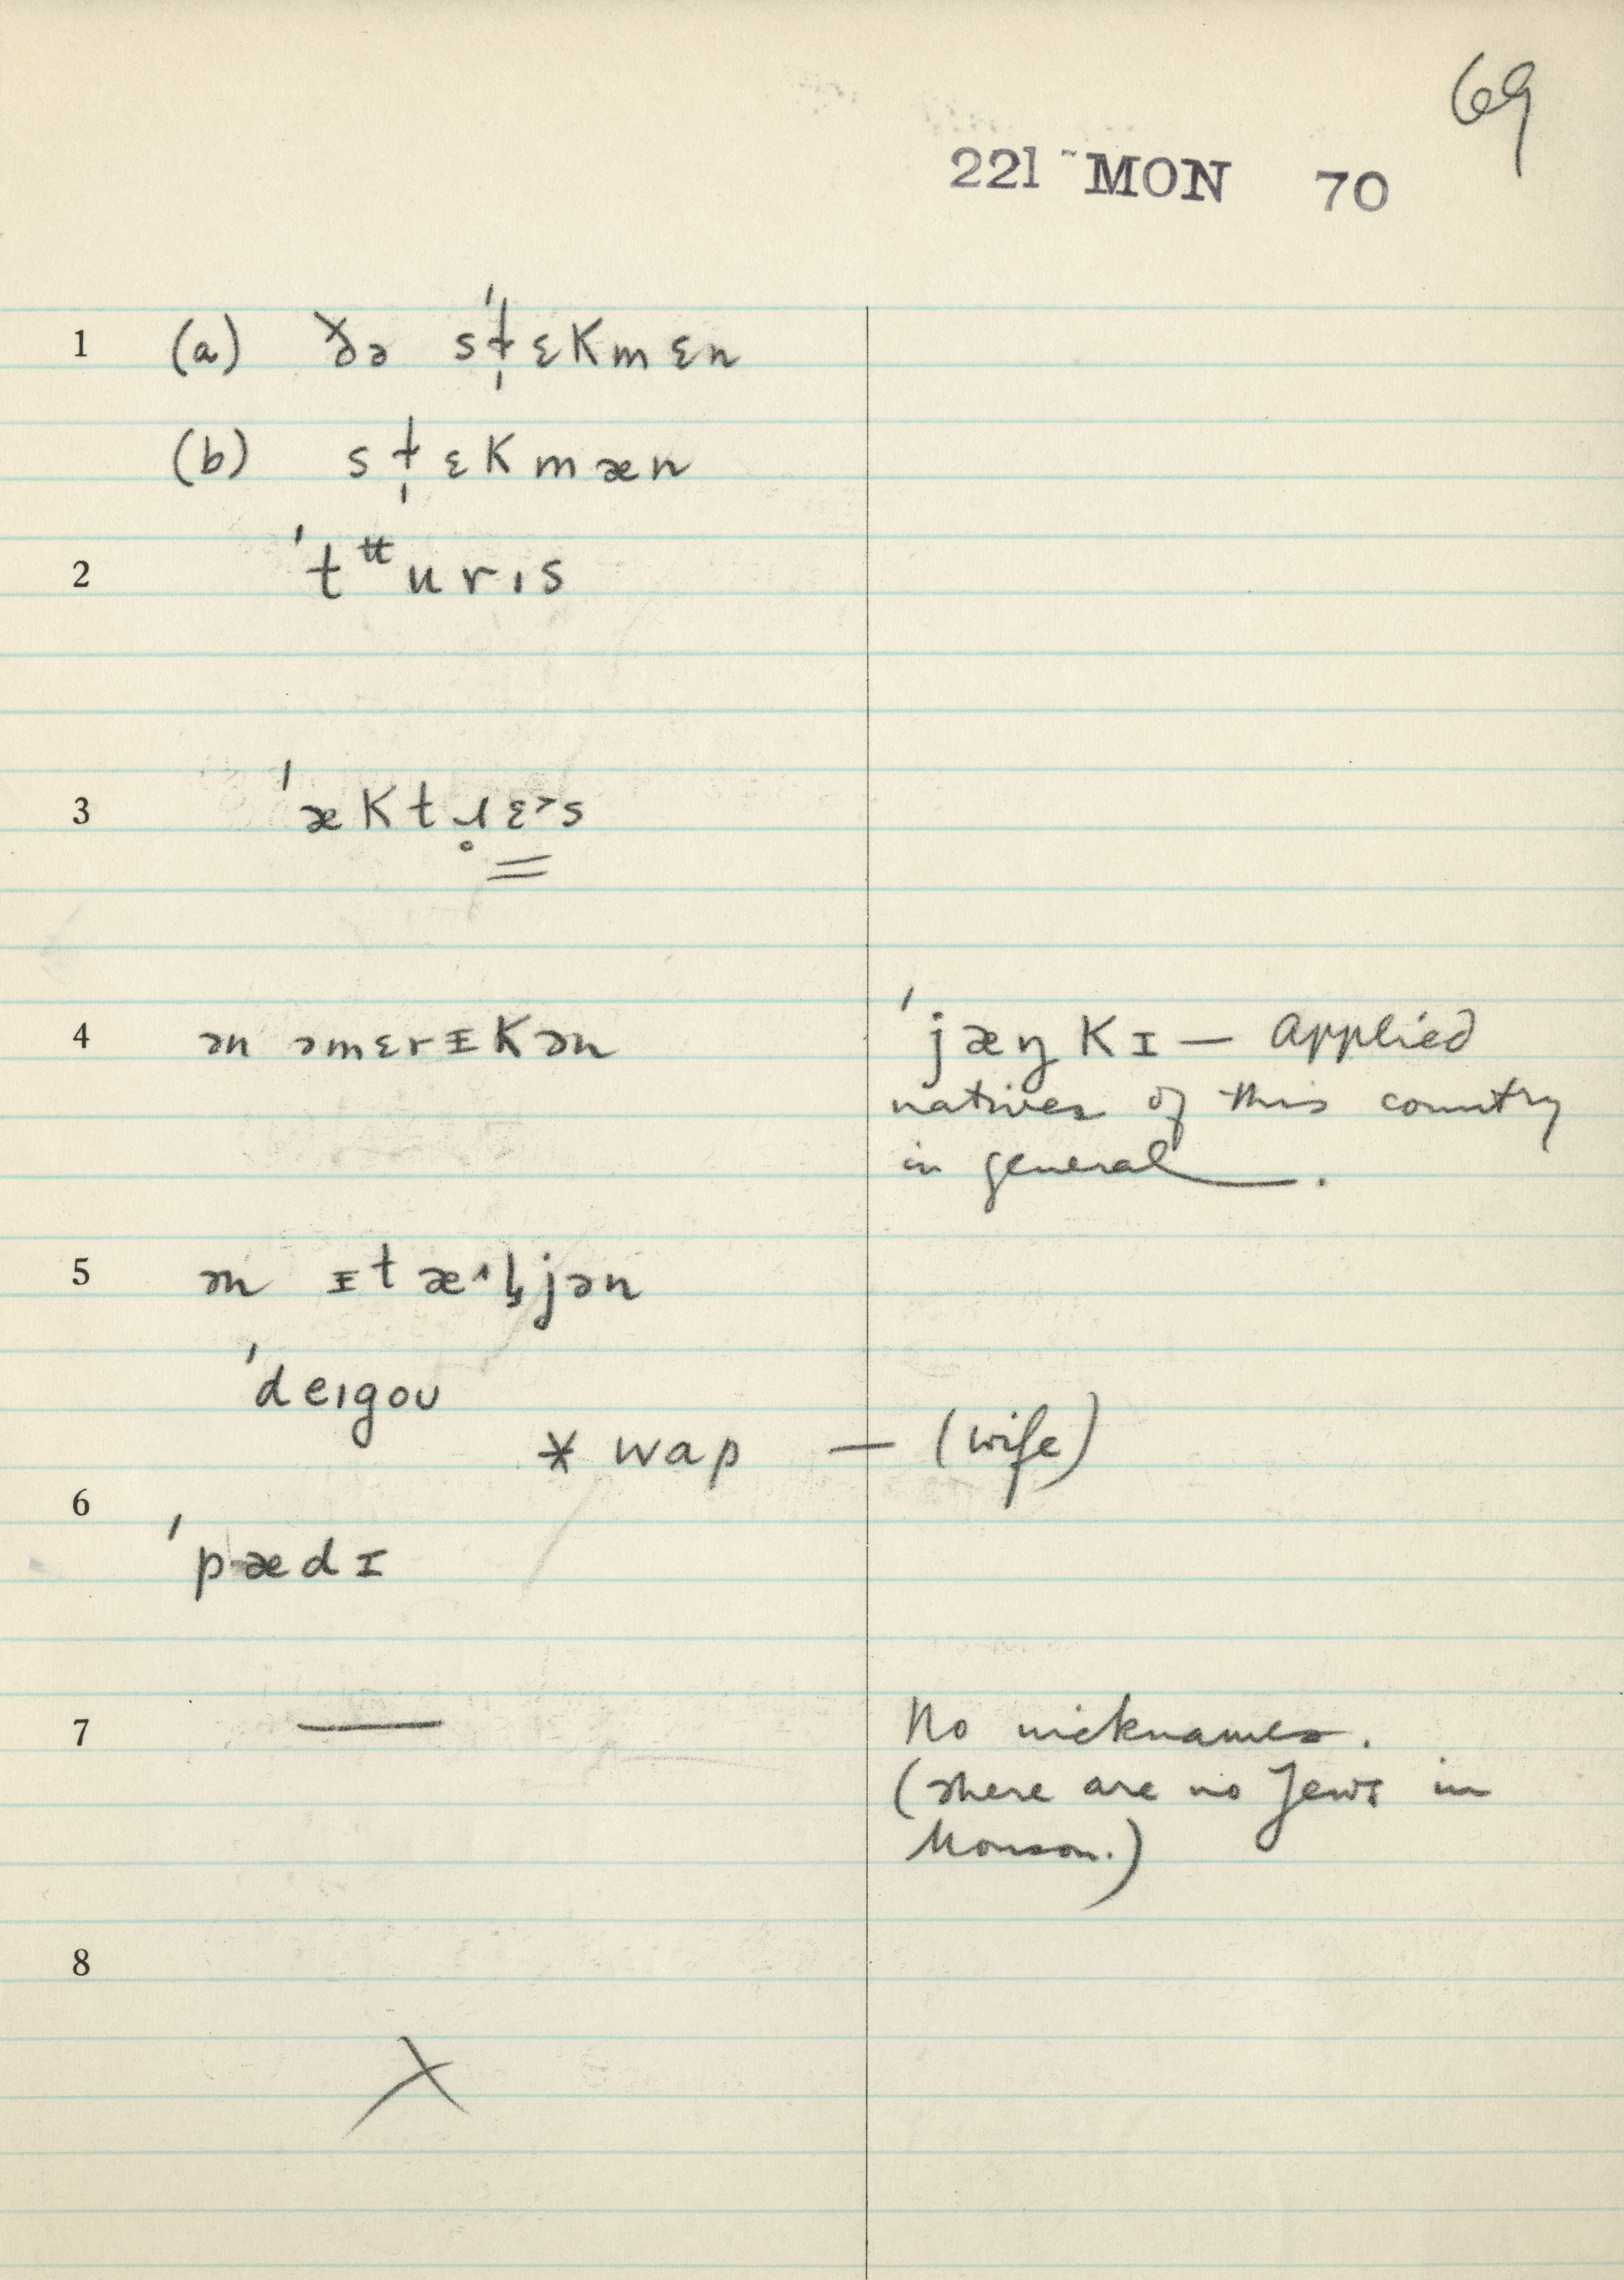 69
221 MON 70
1 (a) ðə sˈt̩ɛkmɛn
(b) st̩ɛkmæn
2 ˈtᵗᵗurɪs
3 ˈæktɹ̥ɛ˃s
4 ən əmɛrᵻkən ˈjæŋkɪ — applied
natives of this country
in general.
5 ən ᵻtæ˄l̡jən
ˈdeɪgoʊ
* wap — (wife)
6
ˈpædɪ
7 — No nicknames.
(There are no Jews in
Monson.)
8
X